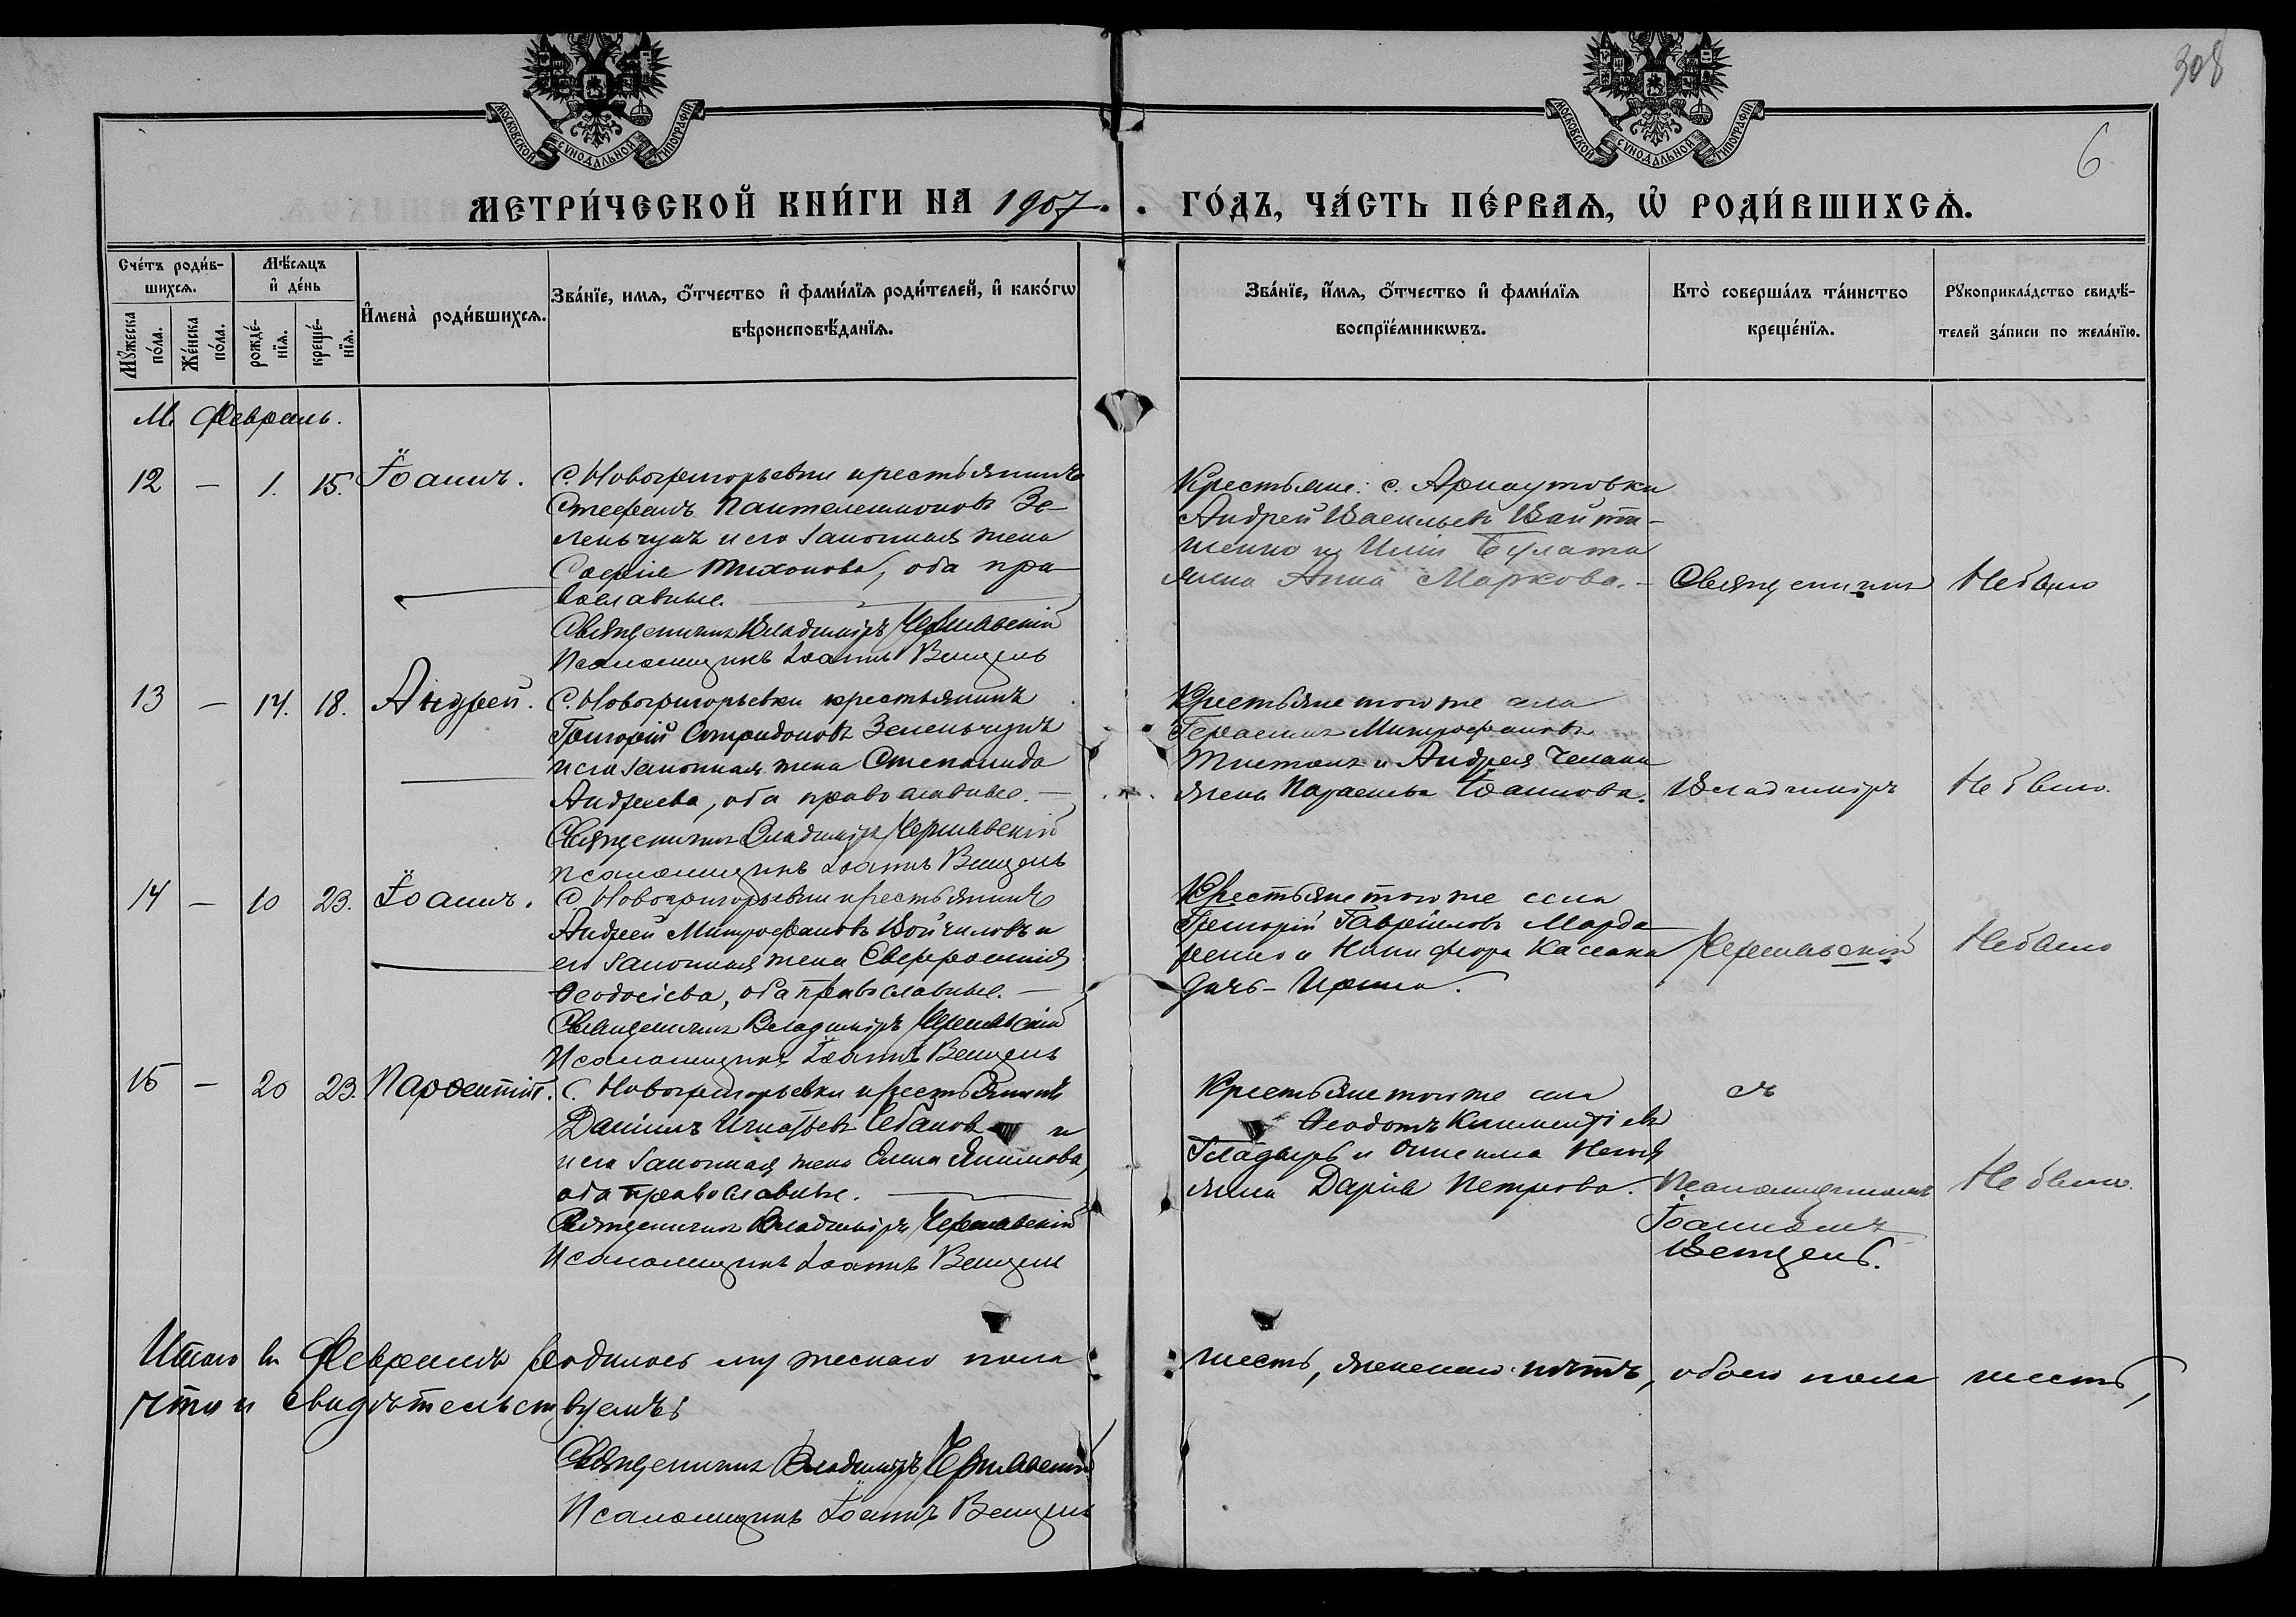 308
6
МОСКОВСКОЙ СУНОДАЛЬНОЙ ТИПОГРАФІИ
МОСКОВСКОЙ СУНОДАЛЬНОЙ ТИПОГРАФІИ
МЕТРИ́ЧЕСКОЙ КНИ́ГИ НА 1907.
ГО́ДЪ, ЧА́СТЬ ПЕ́РВАѦ, Ѡ҆ РОДИ́ВШИХСѦ.
Сче́тъ роди́в-
шихсѧ.
Мꙋ́жеска
по́ла.
Же́нска
по́ла.
Мѣ́сѧцъ
и҆ де́нь
рожде́-
нїѧ.
креще́-
нїѧ.
И҆мена̀ роди́вшихсѧ.
Зва́нїе, имѧ, ѻ҆́тчество и҆ фами́лїѧ роди́телей, и҆ како́гѡ
вѣроисповѣ́данїѧ.
Зва́нїе, и҆́мѧ, ѻ҆́тчество и҆ фами́лїѧ
воспрїе́мникѡвъ.
Кто̀ соверша́лъ та́инство
креще́нїѧ.
Рꙋкоприкла́дство свидѣ́-
телей за́писи по жела́нїю.
М. Февраль.
12 — 1. 15. Іоаннъ.
С. Новогригорьевки крестьянинъ
Стефанъ Пантелеимоновъ Зе-
ленчукъ и его законная жена
Софія Тихонова, оба пра-
вославные.
Священникъ Владиміръ Чернявскій
Псаломщикъ Іоаннъ Венцель
Крестьяне: с. Арнаутовки
Андрей Васильевъ Войти-
шенко и Иліи Булата
жена Анна Маркова.
Священникъ
Не было
13 — 14. 18. Андрей.
С. Новогригорьевки крестьянинъ
Григорій Спиридоновъ Зеленчукъ
и его законная жена Степанида
Андреева, оба православные.
Священникъ Владиміръ Чернявскій
Псаломщикъ Іоаннъ Венцель
Крестьяне того же села
Герасимъ Митрофановъ
и Андрея
жена Параскева Іоаннова.
Владиміръ
Не было.
14 — 10 23. Іоаннъ.
С. Новогригорьевки крестьянинъ
Андрей Митрофановъ Войчиловъ и
его законная жена Евфросинія
Ѳеодосіева, оба православные.
Священникъ Владиміръ Чернявскій
Псаломщикъ Іоаннъ Венцель
Крестьяне того же села
Григорій Гавриловъ Марда-
ренко и Никифора
дочь - Ирина.
Чернявскій
Не было
15 — 20 23. Парѳентій.
С. Новогригорьевки крестьянинъ
Даніилъ Игнатьевъ Чебанов и
и его законная жена Елена Якимова,
оба православные.
Священникъ Владиміръ Чернявскій
Псаломщикъ Іоаннъ Венцель
Крестьяне того же села
Ѳеодотъ Климентіевъ
Гладырь и Онисима
жена Дарія Петрова.
съ
Псаломщикомъ
Іоанномъ
Венцель.
Не было.
Итого въ Февралѣ родилось мужескаго пола шесть, женскаго нѣтъ, обоего пола шесть,
что и свидѣтельствуемъ:
Священникъ Владиміръ Чернявскій
Псаломщикъ Іоаннъ Венцель